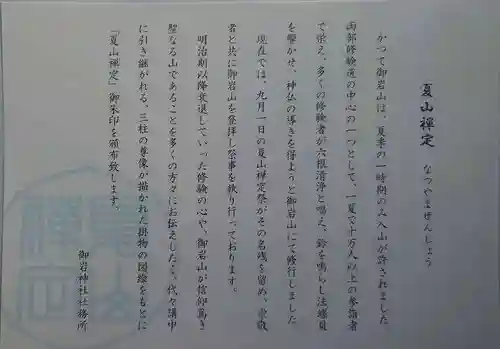 夏山禪定　なつやまぜんじょう
かつて御岩山は、夏季の一時期のみ入山が許されました
両部修験道の中心の一つとして、一夏で十万人以上の参詣者
で栄え、多くの修験者が六根清浄と唱え、鈴を鳴らし法螺貝
を響かせ、神仏の導きを得ようと御岩山にて修行しました
現在では、九月一日の夏山禪定祭がその名残を留め、崇敬
者と共に御岩山を登拝し祭事を執り行っております。
明治期以降衰退していった修験の心や、御岩山が信仰篤き
聖なる山であることを多くの方々にお伝えしたく、代々講中
に引き継がれる、三柱の尊像が描かれた掛物の図絵をもとに
「夏山禪定」御朱印を頒布致します。
御岩神社社務所